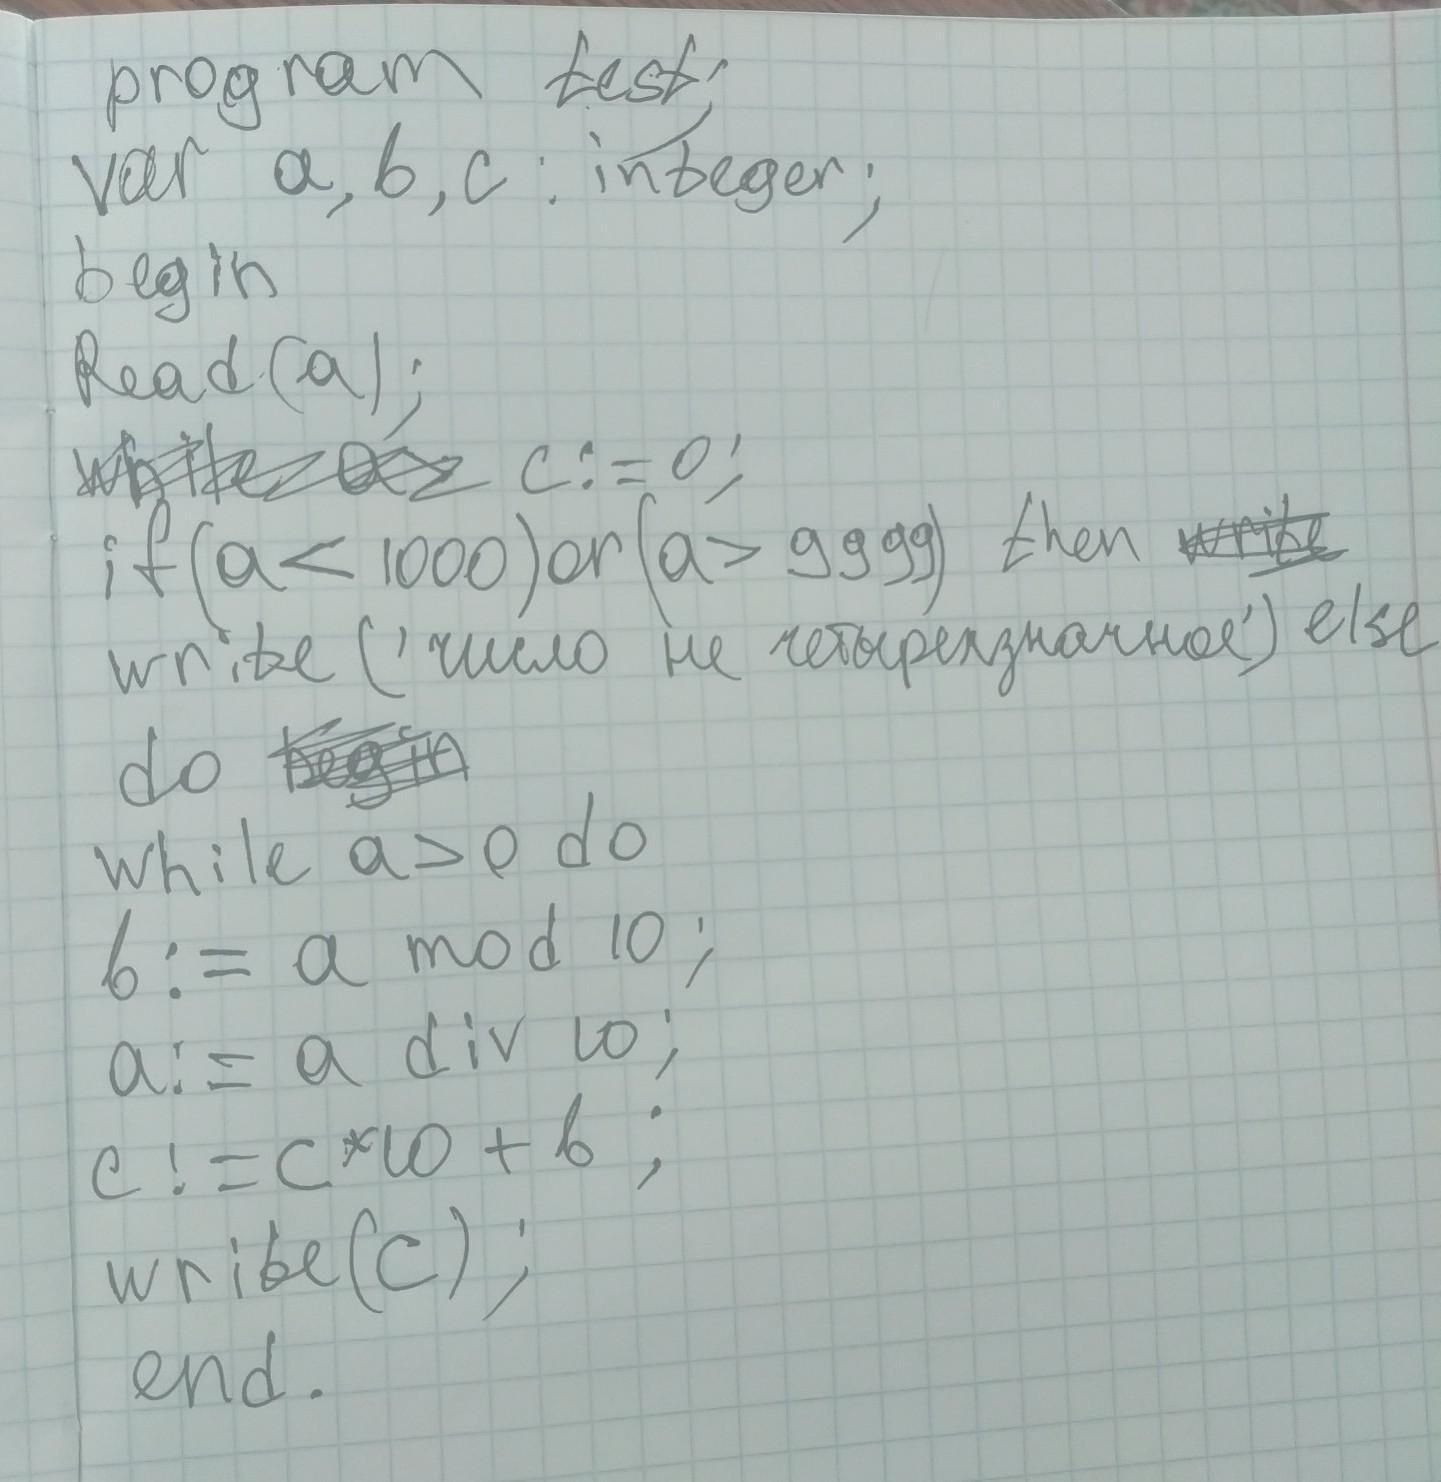 program test;
var a, b, c : integer;
begin
Read(a);
while a> c:=0;
if(a< 1000)or(a> 9999) then write
write ('число не четырехзначное') else
do begin
while a>0 do
b:= a mod 10;
a:= a div 10;
c:=c*10 + b;
write(c);
end.